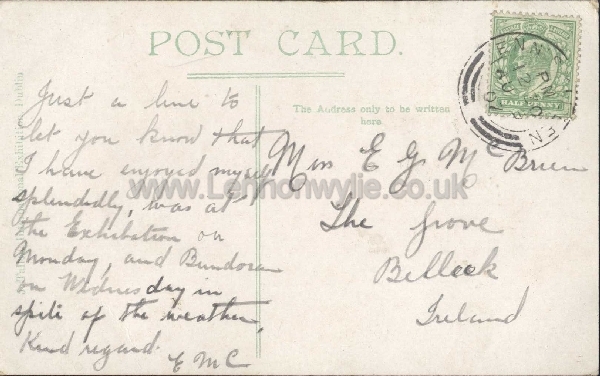 POST CARD.
The Address only to be written
here.
HALFPENNY
Just a line to
let you know that
I have enjoyed myself
splendidly, was at
the Exhibition on
Monday, and Bundoran
on Wednesday in
spite of the weather,
Kind regard
E M C
Miss E G McBrien
The Grove
Belleek
Ireland
www.Lennonwylie.co.uk